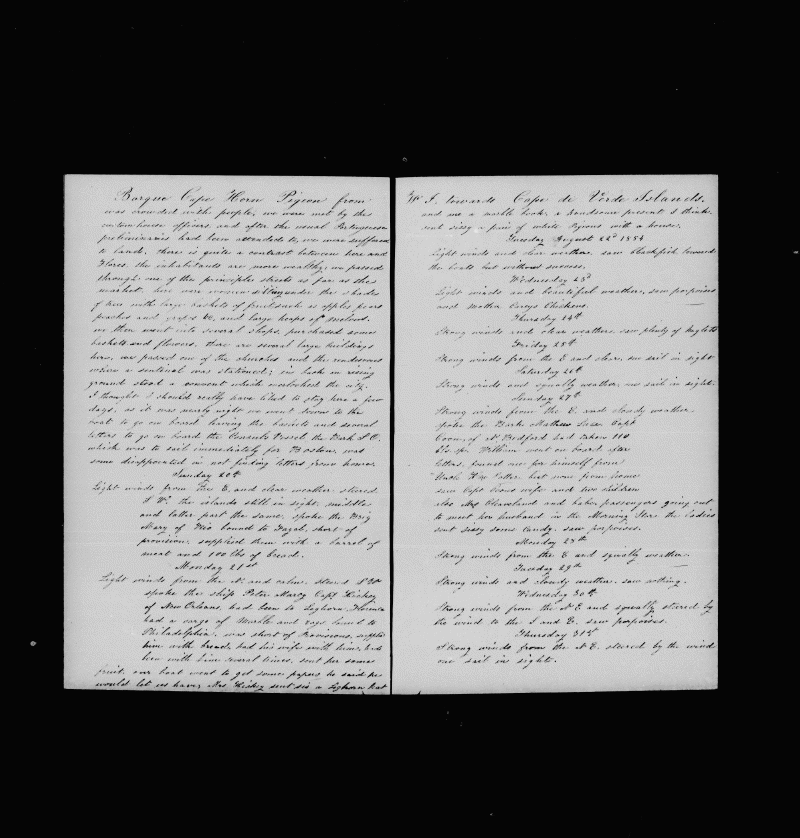 Barque Cape Horn Pigeon from
was crowded with people, we were met by the
custom house officers, and after the usual Portuguese
preliminaries had been attended to, we were suffered
to land, there is quite a contrast between here and
Flores, the inhabitants are more wealthy, we passed
through one of the principle streets as far as the
market, here were women sitting under the shades
of trees with large baskets of fruit such as apples pears
peaches and grapes &c, and large heaps of melons.
we then went into several shops, purchased some
baskets and flowers, there are several large buildings
here, we passed one of the churches and the
where a sentinal was stationed; in back on rising
ground stood a convent which overlooked the city.
I thought I should really have liked to stay here a few
days, as it was nearly night we went down to the
boat to go on board, leaving the baskets and several
letters to go on board the Consuls Vessel the Bark
which was to sail immediately for Boston, was
some disappointed in not finding letters from home.
Sunday 20th
Light winds from the E, and clear weather steered
S W. the islands still in sight, middle
and latter part the same, spoke the Brig
Mary of Rio bound to Fayal, short of
provision, supplied them with a barrel of
meat and 100 lbs of bread.
Monday 21st
Light winds from the N. and calm, steered S W
spoke the ship Peter Marcy Capt Hickey
of New Orleans, had been to Leghorn, Florence
had a cargo of Marble and rags bound to
Philadelphia, was short of Provisions, supplied
him with bread, had his wife with him, had
been with him several times, sent her some
fruit, our boat went to get some papers he said he
would let us have, Mrs Hickey sent sis a Leghorn hat
W. I. towards Cape de Verde Islands.
and me a marble book, a handsome present I think.
sent sissy a pair of white pigeons with a house.
Tuesday August 22d 1854
Light winds and clear weather, saw blackfish lowered
the boats but without success.
Wednesday 23d
Light winds and beautiful weather, saw porpoises
and Mother Careys Chickens.
Thursday 24th
Strong winds and clear weather, saw plenty of
Friday 25th
Strong winds from the E and clear, one sail in sight
Saturday 26th
Strong winds and squally weather, one sail in sight.
Sunday 27th
Strong winds from the E. and cloudy weather
spoke the Bark Mathew Luce Capt
Coon, of N Bedford had taken 110
William went on board after
letters, found one for himself from
but none from home
saw Capt Coons wife and two children
also Mrs Cleaveland and babe, passengers going out
to meet her husband in the Morning Star, the ladies
sent sissy some candy. saw porpoises.
Monday 28th
Strong winds from the E and squally weather.
Tuesday 29th
Strong winds and cloudy weather. saw nothing.
Wednesday 30th
Strong winds from the N E and squally steered by
the wind to the S and E. saw porpoises.
Thursday 31st
Strong winds from the N E. steered by the wind
one sail in sight.